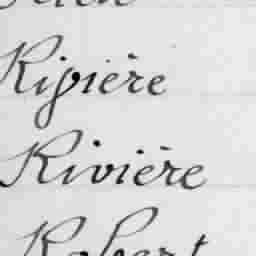 Ripière
Rivière
Robert